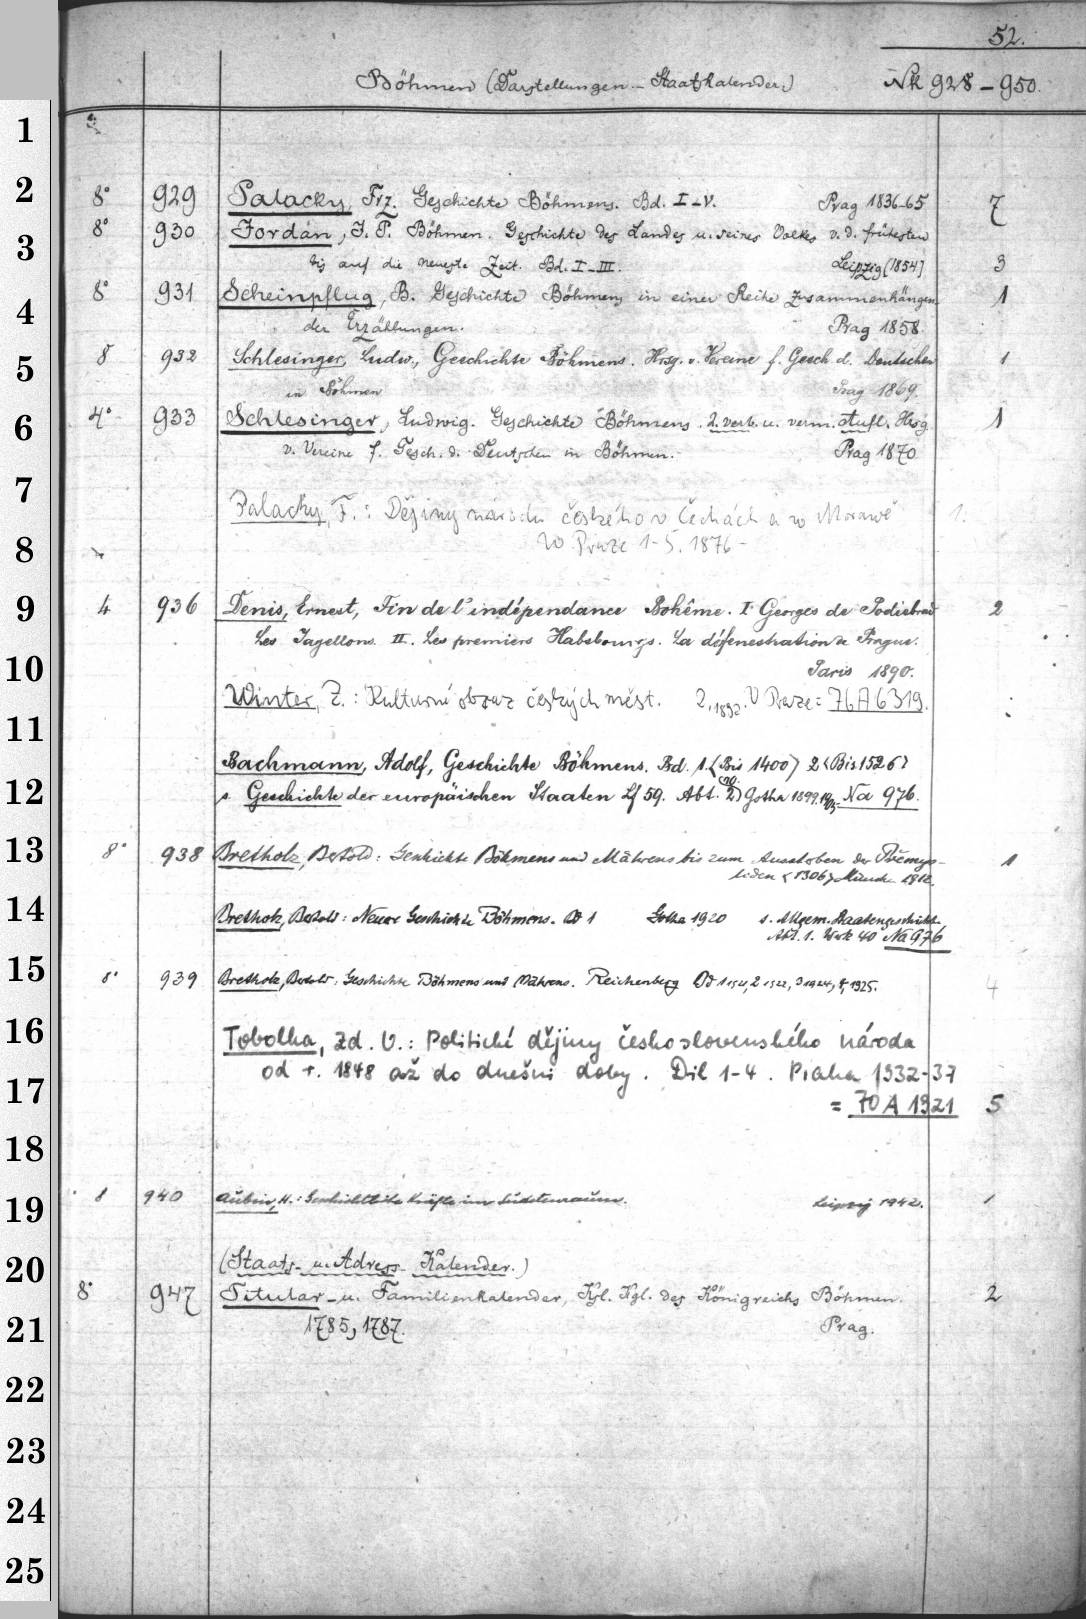 52.
Böhmen (Darstellungen - Staatskalender) Nk 928 - 950.
1
2
8° 929 Palacky, Frz. Geschichte Böhmens. Bd. I-V. Prag 1836-65 7
8° 930 Jordan, J. P. Böhmen. Geschichte des Landes u. seines Volkes v. d. frühesten
3
bis auf die neueste Zeit. Bd. I-III. Leipzig [1854] 3
8° 931 Scheinpflug, B. Geschichte Böhmens in einer Reihe zusammenhängen- 1
4
der Erzählungen. Prag 1858.
8 932 Schlesinger, Ludw., Geschichte Böhmens. Hrsg. v. Vereine f. Gesch. d. Deutschen 1
5
in Böhmen Prag 1869.
4° 933 Schlesinger, Ludwig. Geschichte Böhmens. 2. verb. u. verm. Aufl. Hrsg. 1
6
v. Vereine f. Gesch. d. Deutschen in Böhmen. Prag 1870
7
Palacky, F.: Dějiny národu českého v Čechách a w Morawě 1.
8
W Praze 1-5. 1876-
9
4 936 Denis, Ernest, Fin de l'indépendance Bohême. I Georges de Podiebrad 2
Les Jagellons. II. Les premiers Habsbourgs. La défenestration de Prague.
10
Paris 1890.
Winter, Z.: Kulturní obraz českých měst. 2, 1892. V Praze = 76 A 6319.
11
Bachmann, Adolf, Geschichte Böhmens. Bd. 1. (Bis 1400) 2 (Bis 1526)
12
s. Geschichte der europäischen Staaten Lf 59. Abt. 2) Gotha 1899. Na 976.
13
8° 938 Bretholz, Bertold: Geschichte Böhmens und Mährens bis zum Aussterben der Přemys- 1
liden (1306) München 1912.
14
Bretholz, Bertold: Neuere Geschichte Böhmens. Bd 1 Gotha 1920 s. Allgem. Staatengeschichte
Abt. 1. Werk 40 Na 976
15
8° 939 Bretholz, Bertold: Geschichte Böhmens und Mährens. Reichenberg Bd 1 1921, 2 1922, 3 1924, 4, 1925. 4
16
Tobolka, Zd. V.: Politické dějiny československého národa
od r. 1848 až do dnešní doby. Díl 1-4. Praha 1932-37
17
= 70 A 1321 5
18
19
8 940 Aubin, H.: Geschichtliche Kräfte im Sudetenraum. Leipzig 1942. 1
20
(Staats- u. Adress- Kalender.)
8° 947 Titular- u. Familienkalender, Kgl. des Königreichs Böhmen. 2
21
1785, 1787. Prag.
22
23
24
25